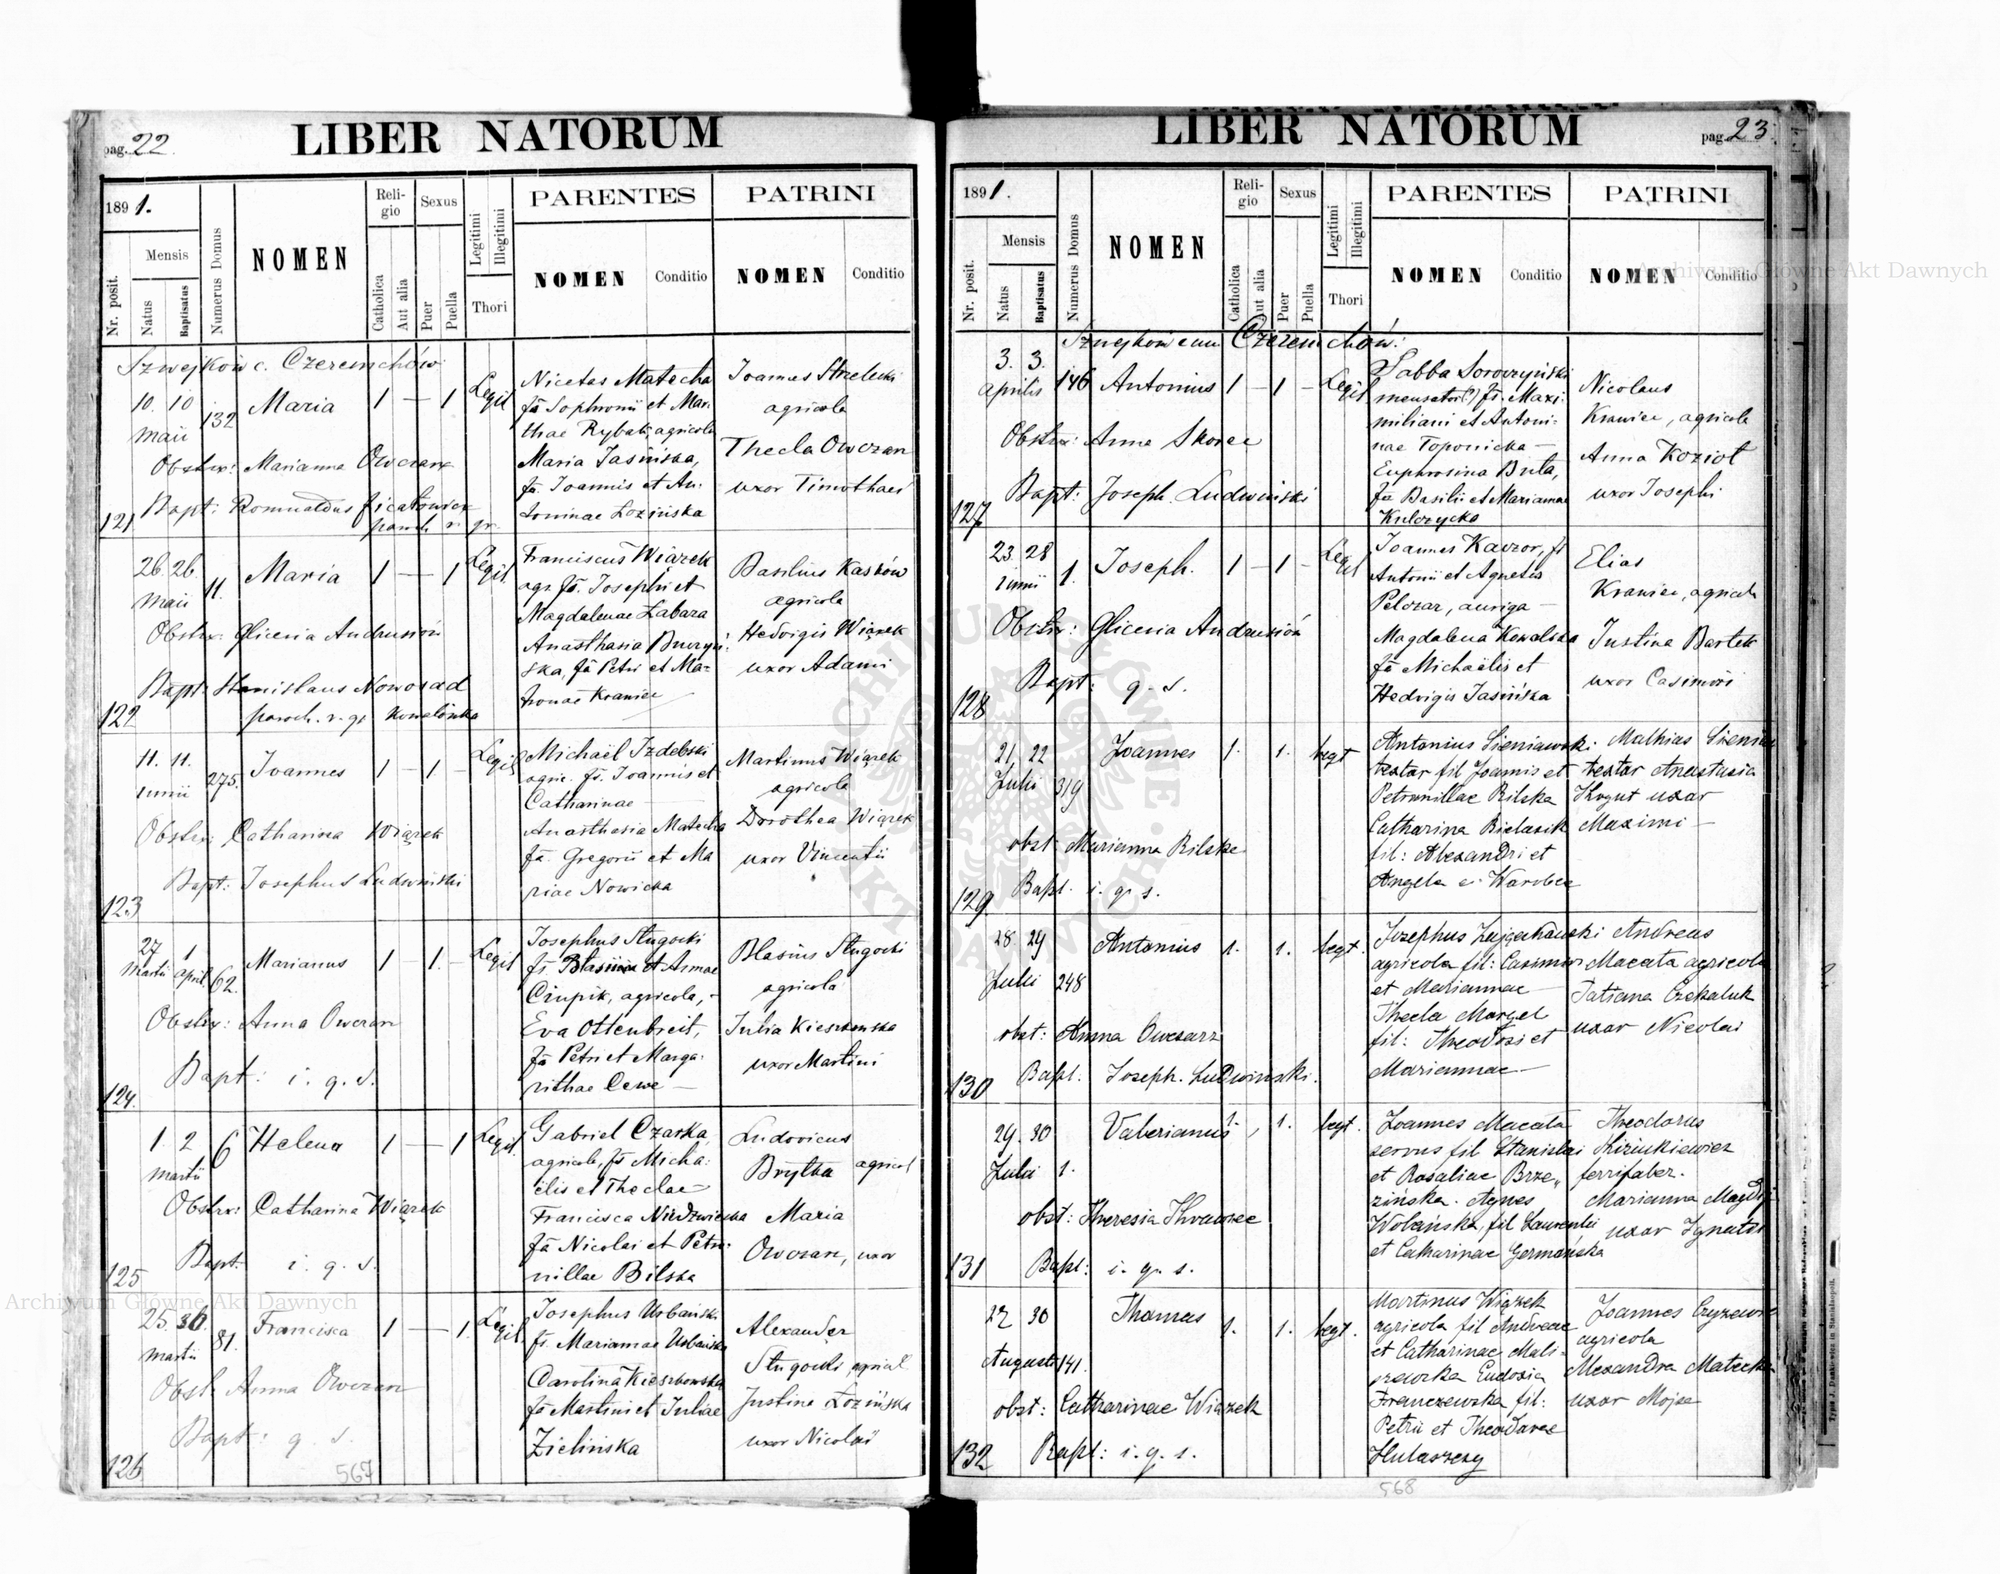 pag. 22.
LIBER NATORUM
1891.
Mensis
Nr. posit.
Natus
Baptisatus
Numerus Domus
NOMEN
Religio
Catholica
Aut alia
Sexus
Puer
Puella
Legitimi
Illegitimi
Thori
PARENTES
NOMEN
Conditio
PATRINI
NOMEN
Conditio
Szwejków c. Czeremchów
121
10. 10
Maii
132
Maria
1 — 1
Legit
Nicetas Matecha
fs Sophronii et Mar-
thae Rybak, agricola
Maria Jasińska,
fa. Joannis et An-
toninae Łozińska
Joannes Strelecki
agricola
Thecla Owczar
uxor Timothaei
Obstrx: Marianna Owczarz
Bapt: Romualdus
paroch. r. gr.
122
26. 26.
Maii
11.
Maria
1 — 1
Legit
Franciscus Wiązek
agr. fs. Josephi et
Magdalenae Łabaza
Anasthasia
ska, fa Petri et Ma-
tronae Krawiec
Basilius Kasków
agricola
Hedvigis Wiązek
uxor Adami
Obstrx: Gliceria Andrusiów
Bapt: Stanislaus Nowosad
paroch. r. gr. Kowalówka
123
11. 11.
Iunii
275.
Joannes
1 — 1 —
Legit
Michael Izdebski
agric. fs. Joannis et
Catharinae —
Anasthasia Matecha
fa. Gregorii et Ma
riae Nowicka
Martinus Wiązek
agricola
Dorothea Wiązek
uxor Vincentii
Obstrx: Catharina Wiązek
Bapt: Josephus Ludwiński
124.
27 1
Martii april.
62.
Marianus
1 — 1. —
Legit
Josephus Sługocki
fs Blasii et Annae
Ciupik, agricola, -
Eva Ottenbreit,
fa Petri et Marga-
rithae Dewe —
Blasius Sługocki
agricola
Julia Kieszkowska
uxor Martini
Obstrx: Anna Owczarz
Bapt: i. q. s.
125
1. 2
Martii
6
Helena
1 — 1
Legit.
Gabriel Czarka,
agricola, fs Micha-
elis et Theclae —
Francisca Niedzwiecka
fa Nicolai et Petro-
nillae Bilska
Ludovicus
Brytka agricol
Maria
Owczarz, uxor
Obstrx: Catharina Wiązek
Bapt: i. q. s.
126
25. 30.
Martii
81.
Francisca
1 — 1.
Legit
Josephus Urbański
fs. Mariannae Urbańska
Carolina Kieszkowska
fa Martini et Juliae
Zielińska
Alexander
Sługocki, agricol
Justina Łozińska
uxor Nicolai
Obst: Anna Owczarz
Bapt: q. s.
567
pag. 23.
LIBER NATORUM
1891.
Mensis
Nr. posit.
Natus
Baptisatus
Numerus Domus
NOMEN
Religio
Catholica
Aut alia
Sexus
Puer
Puella
Legitimi
Illegitimi
Thori
PARENTES
NOMEN
Conditio
PATRINI
NOMEN
Conditio
Szwejków cum Czeremchów.
127
3. 3.
Aprilis
146
Antonius
1 — 1 —
Legit
Sabba Soroczyński
mensator(?) fs. Maxi-
miliani et Antoni-
nae Toponicka —
Euphrosina Buta,
fa Basilii et Mariannae
Kulczycka
Nicolaus
Krawiec, agricola
Anna Kozioł
uxor Josephi
Obstrx: Anna Skorec
Bapt: Joseph. Ludwiński
128
23. 28
Iunii
1.
Joseph.
1 — 1 —
Legit
Joannes Kaczor, fs
Antonii et Agnetis
Pelczar, auriga —
Magdalena Kowalska
fa Michaelis et
Hedvigis Jasińska
Elias
Krawiec, agricola
Justina Bartek
uxor Casimiri
Obstrx: Gliceria Andrusiów
Bapt: q. s.
129.
21, 22
Julii
319
Joannes
1. 1.
legt
Antonius Sieniawski
textor fil Joannis et
Petronillae Bilska
Catharina Bielasik
fil: Alexandri et
Angela e. Warobec
Mathias Sieniaw
textor Anastasia
Kogut uxor
Maximi —
obst: Marianna Bilska
Bapt. i. q. s.
130
28. 29
Julii
248
Antonius
1. 1.
legt.
Josephus Zajączkowski
agricola fil: Casimiri
et Mariannae —
Thecla Margel
fil: Theodosi et
Mariannae —
Andreas
Macata agricola
Tatiana Czekaluk
uxor Nicolai
obst: Anna Owczarz
Bapt. Joseph. Ludwinski.
131
29. 30
Julii
1.
Valerianus
1. 1.
legt.
Joannes Macata
servus fil Stanislai
et Rosaliae Brze-
zińska. Agnes
Wolańska, fil Laurentii
et Catharinae Germańska
Theodorus
ferrifaber.
Marianna
uxor Ignatii
obst: Theresia
Bapt: i. q. s.
132
22 30
Augusti
141.
Thomas
1. 1.
legt.
Martinus Wiązek
agricola fil Andreae
et Catharinae Mali-
nowska Eudoxia
Franczewska fil:
Petri et Theodorae
Hulaszczy
Joannes
agricola
Alexandra Matecka
uxor Mojse
obst: Catharinae Wiązek
Bapt: i. q. s.
568
Archiwum Główne Akt Dawnych
Archiwum Główne Akt Dawnych